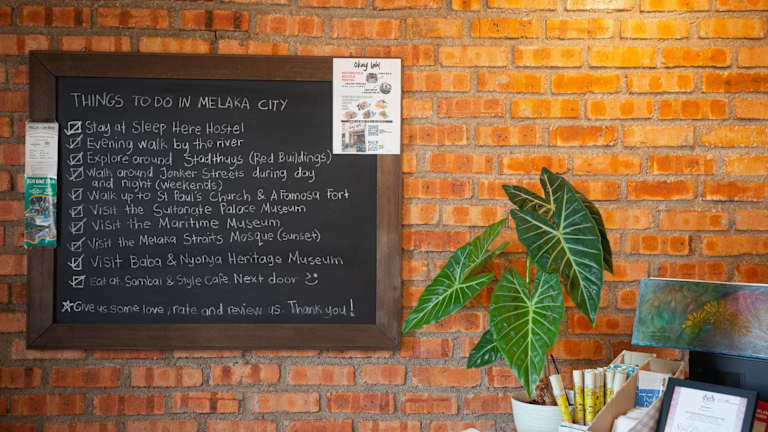 THINGS TO DO IN MELAKA CITY
Stay at Sleep Here Hostel
Evening walk by the river
Explore around Stadthuys (Red Buildings)
Walk around Jonker Streets during day
and night (weekends)
Walk up to St Paul's Church & A Famosa Fort
Visit the Sultanate Palace Museum
Visit the Maritime Museum
Visit the Melaka Straits Mosque (sunset)
Visit Baba & Nyonya Heritage Museum
Eat at Sambai & Style Cafe, Next door
Give us some love, rate and review us. Thank you!